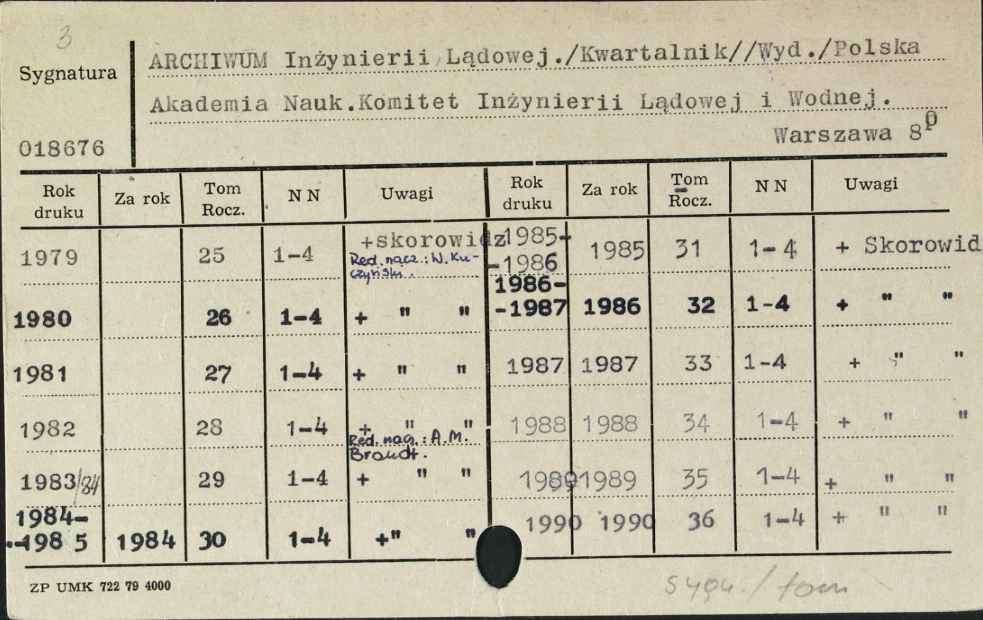 3
Sygnatura
ARCHIWUM Inżynierii Lądowej./Kwartalnik//Wyd./Polska
Akademia Nauk.Komitet Inżynierii Lądowej i Wodnej.
018676
Warszawa 8°
Rok druku Za rok Tom Rocz. N N Uwagi Rok druku Za rok Tom Rocz. N N Uwagi
1979 25 1-4 +skorowidz 1985-
-1986 1985 31 1-4 + Skorowid
Red. nacz.: W. Ku-
czyński.
1980 26 1-4 + " " 1986-
-1987 1986 32 1-4 + " "
1981 27 1-4 + " " 1987 1987 33 1-4 + " "
1982 28 1-4 + " " 1988 1988 34 1-4 + " "
Red. nacz.: A.M.
Brandt.
1983/84 29 1-4 + " " 1989 1989 35 1-4 + " "
1984-
-1985 1984 30 1-4 +" " 1990 1990 36 1-4 + " "
ZP UMK 722 79 4000
sygn./tom